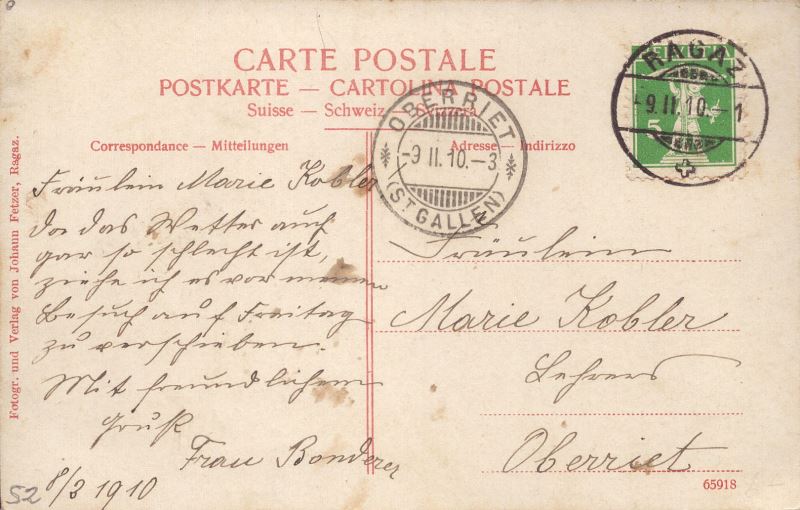 CARTE POSTALE
POSTKARTE — CARTOLINA POSTALE
Suisse — Schweiz — Svizzera
RAGAZ
-9.II.10.-1
5
OBERRIET
-9.II.10.-3
(ST GALLEN)
Correspondance — Mitteilungen
Adresse — Indirizzo
Fräulein Marie Kobler
da das Wetter auch
gar so schlecht ist,
ziehe ich es vor meinen
Besuch auf Freitag
zu verschieben.
Mit freundlichem
Gruß
Frau Bonderer
8/2 1910
52
Fräulein
Marie Kobler
Lehrers
Oberriet
65918
Fotogr. und Verlag von Johann Fetzer, Ragaz.